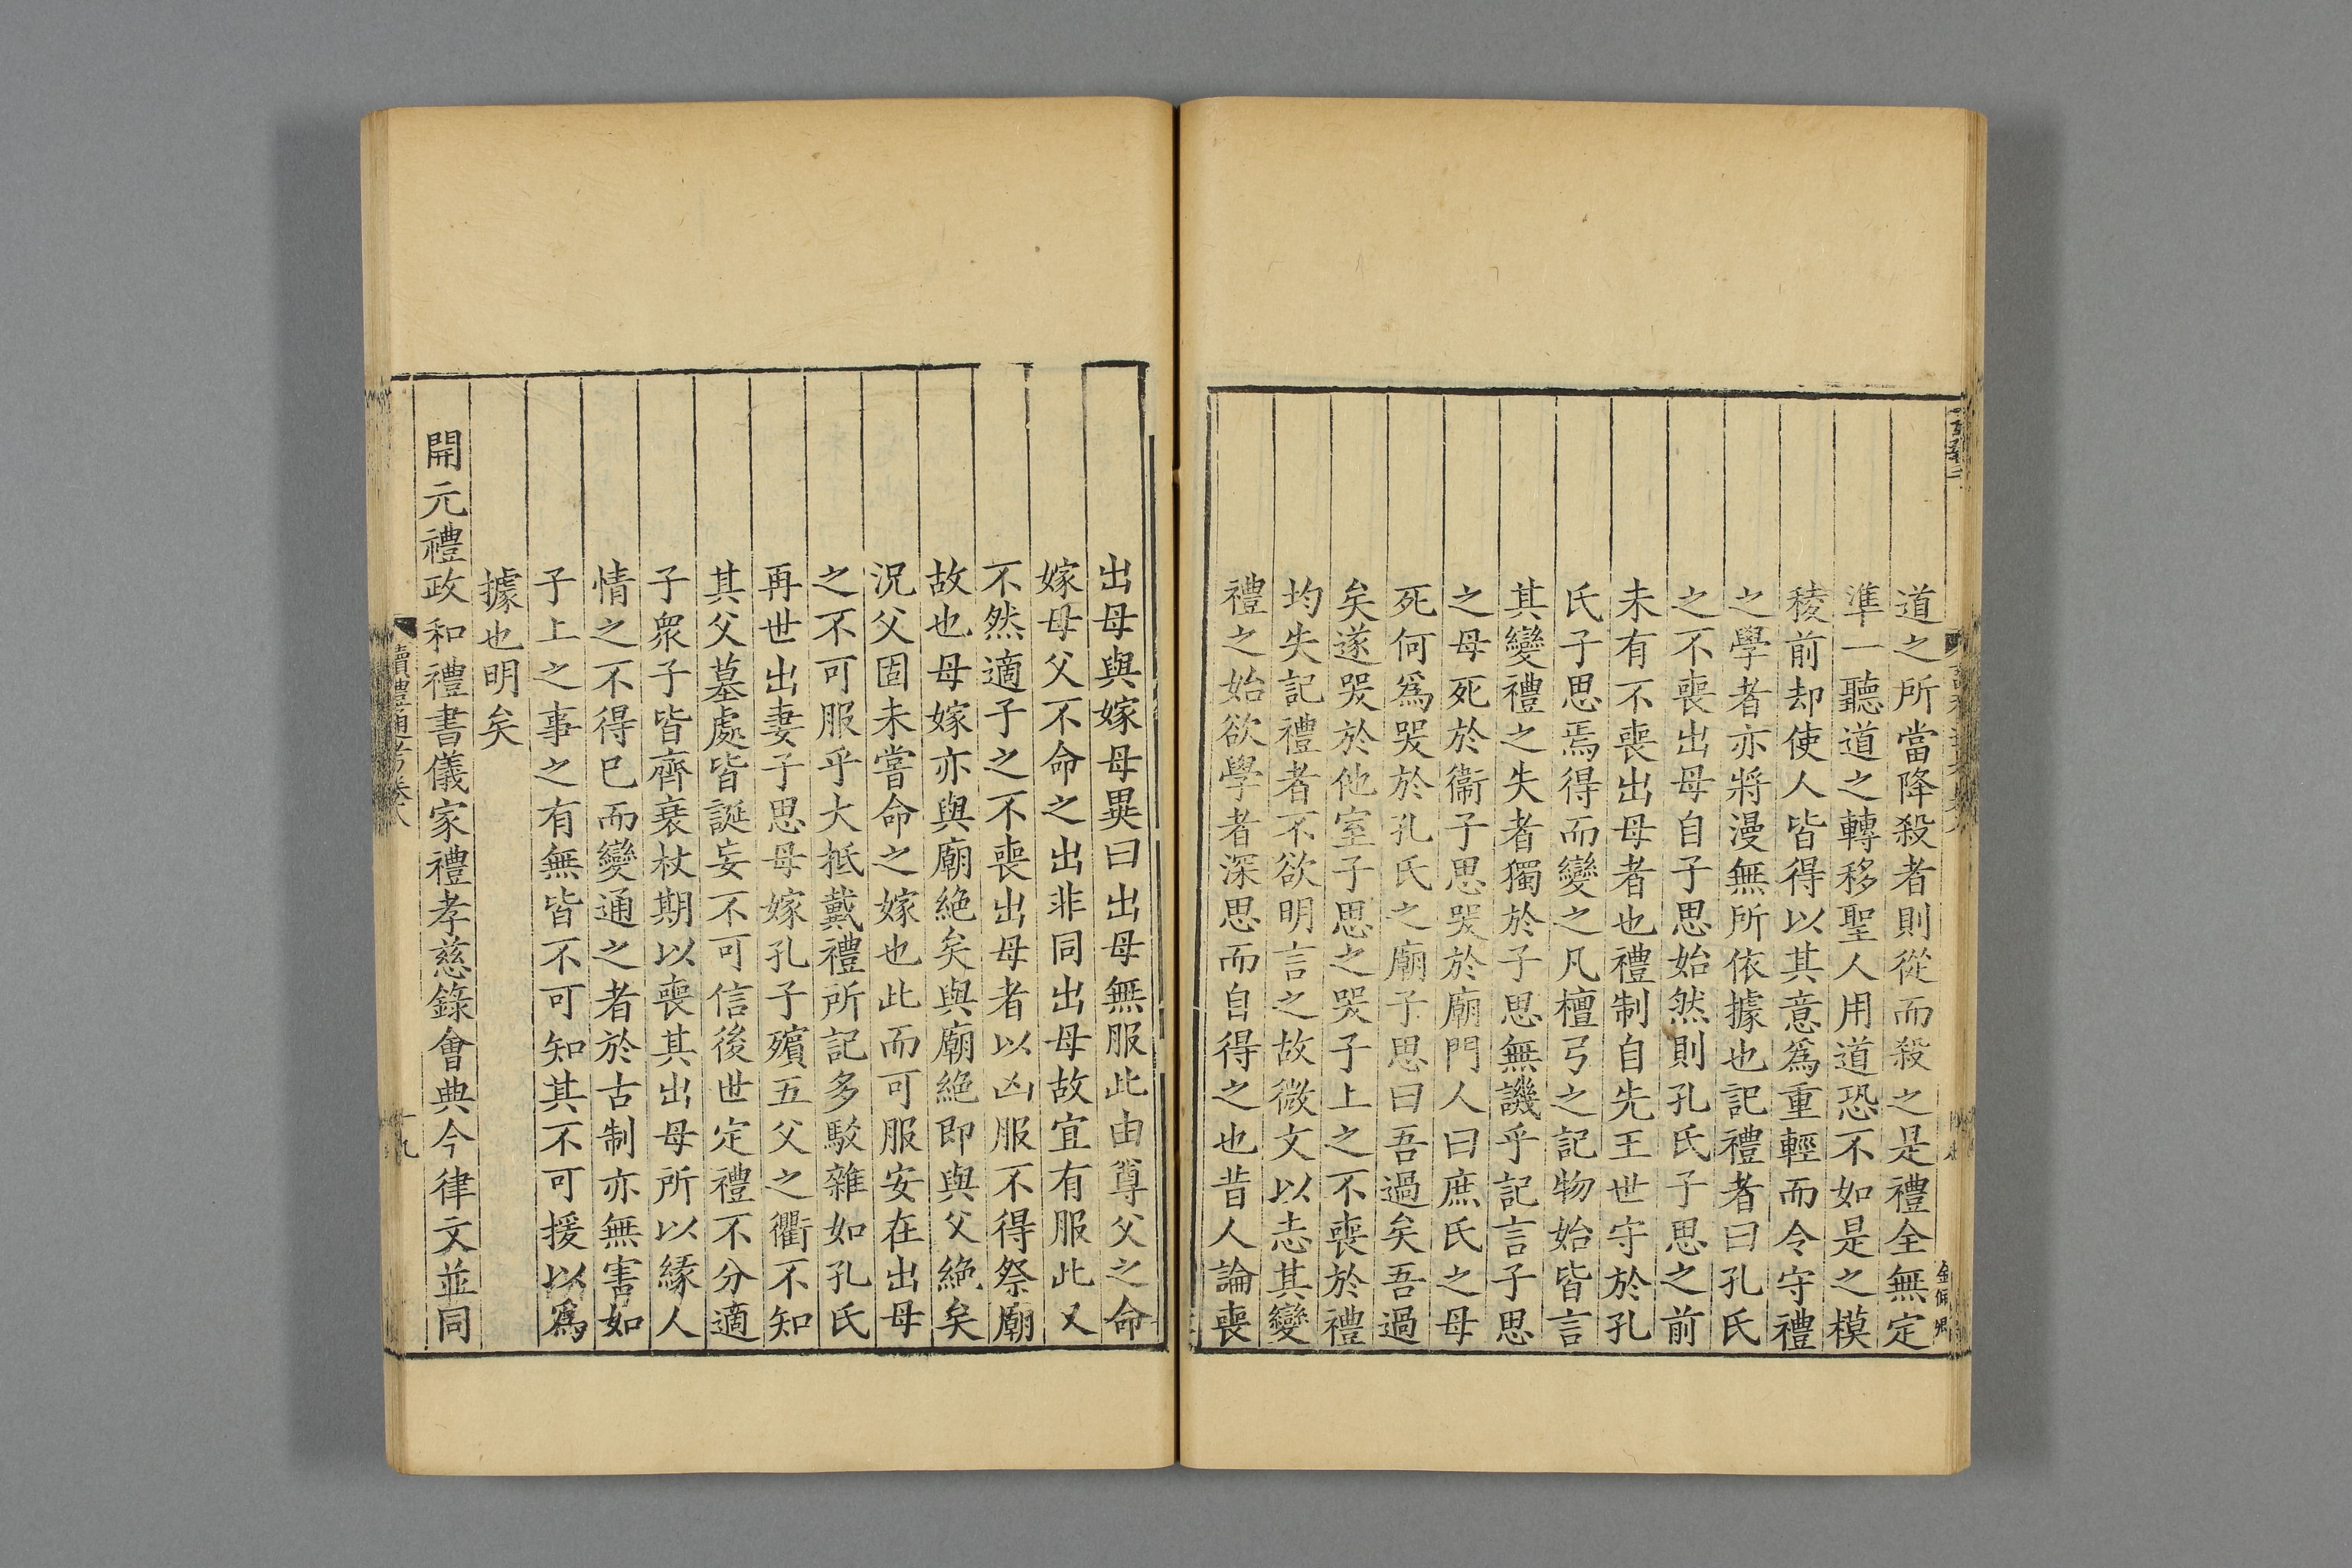 道之所當降殺者則從而殺之是禮全無定
準一聽道之轉移聖人用道恐不如是之模
稜前却使人皆得以其意爲重輕而令守禮
之學者亦將漫無所依據也記禮者曰孔氏
之不喪出母自子思始然則孔氏子思之前
未有不喪出母者也禮制自先王世守於孔
氏子思焉得而變之凡檀弓之記物始皆言
其變禮之失者獨於子思無譏乎記言子思
之母死於衞子思哭於廟門人曰庶氏之母
死何爲哭於孔氏之廟子思曰吾過矣吾過
矣遂哭於他室子思之哭子上之不喪於禮
均失記禮者不欲明言之故微文以志其變
禮之始欲學者深思而自得之也昔人論喪
出母與嫁母異曰出母無服此由尊父之命
嫁母父不命之出非同出母故宜有服此又
不然適子之不喪出母者以凶服不得祭廟
故也母嫁亦與廟絶矣與廟絶即與父絶矣
況父固未嘗命之嫁也此而可服安在出母
之不可服乎大抵戴禮所記多駁雜如孔氏
再世出妻子思母嫁孔子殯五父之衢不知
其父墓處皆誕妄不可信後世定禮不分適
子衆子皆齊衰杖期以喪其出母所以緣人
情之不得已而變通之者於古制亦無害如
子上之事之有無皆不可知其不可援以爲
據也明矣
開元禮政和禮書儀家禮孝慈錄會典今律文並同
讀禮通考卷八
十九